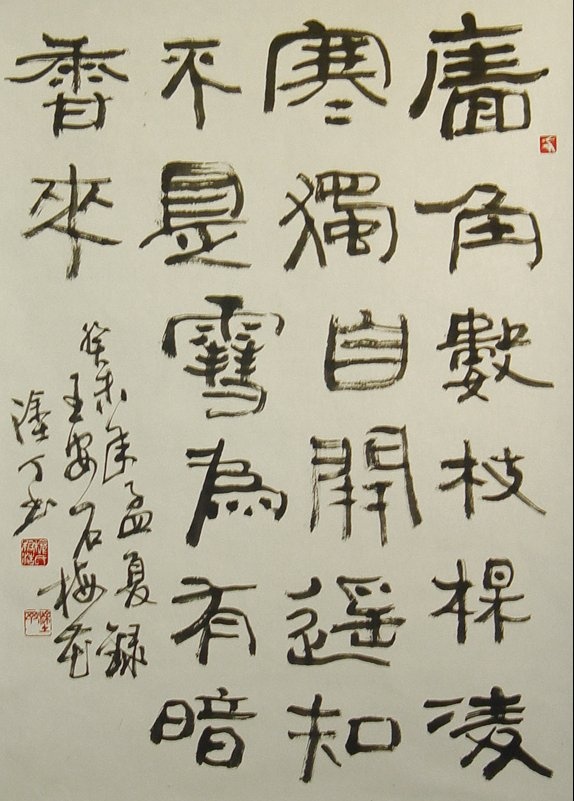 廧角數枝楳凌
寒獨自開遥知
不是雪為有暗
香來
癸未年孟夏録
王安石梅花
丁书